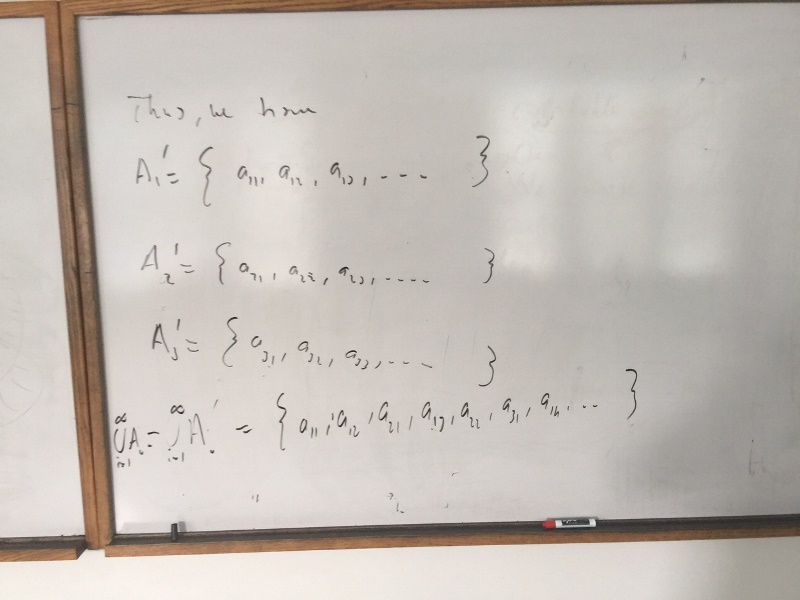 Thus, we have
A₁' = { a₁₁, a₁₂, a₁₃, ---- }
A₂' = { a₂₁, a₂₂, a₂₃, ---- }
A₃' = { a₃₁, a₃₂, a₃₃, ---- }
∞⋃i=1 Aᵢ = ∞⋃i=1 Aᵢ' = { a₁₁, a₁₂, a₂₁, a₁₃, a₂₂, a₃₁, a₁₄, ... }